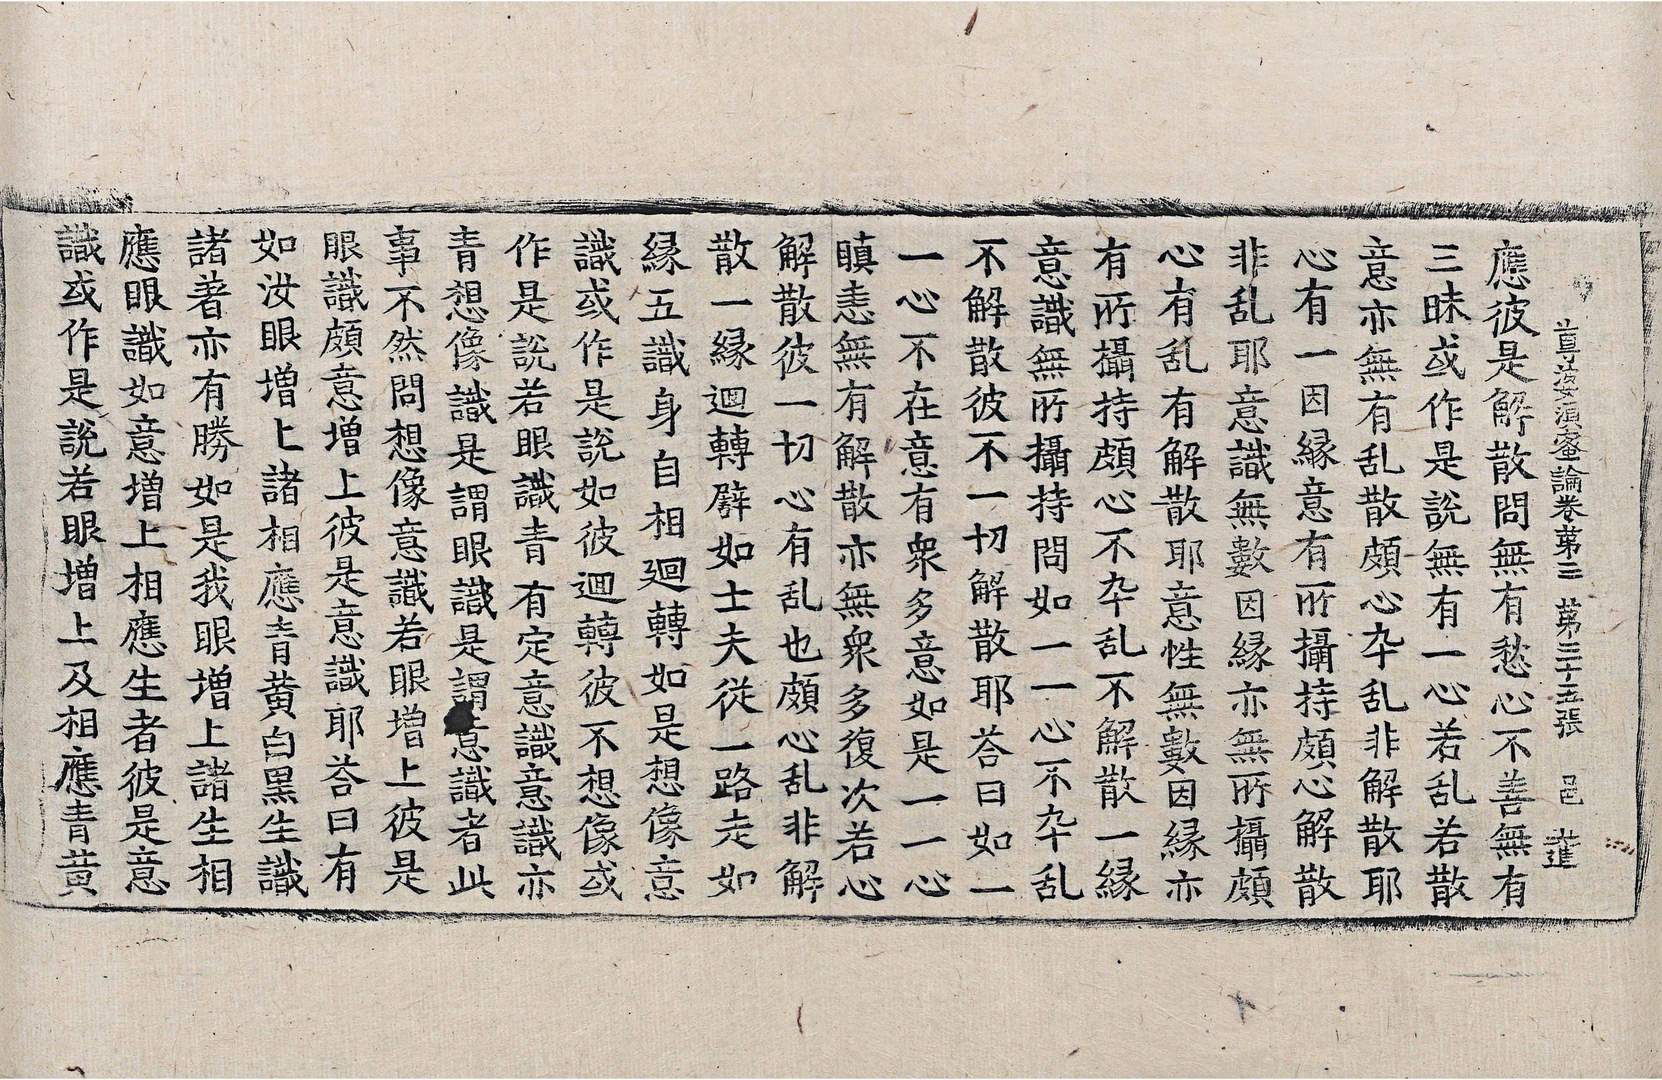 尊婆湏蜜論卷第三　第三十五張　邑　進
應彼是解散問無有愁心不善無有
三昧或作是說無有一心若乱若散
意亦無有乱散頗心卒乱非解散耶
心有一因縁意有所攝持頗心解散
非乱耶意識無數因縁亦無所攝頗
心有乱有解散耶意性無數因縁亦
有所攝持頗心不卒乱不解散一縁
意識無所攝持問如一一心不卒乱
不解散彼不一切解散耶荅曰如一
一心不在意有衆多意如是一一心
瞋恚無有解散亦無衆多復次若心
解散彼一切心有乱也頗心乱非解
散一縁迴轉譬如士夫從一路走如
縁五識身自相迴轉如是想像意
識或作是說如彼迴轉彼不想像或
作是說若眼識青有定意識意識亦
青想像識是謂眼識是謂意識者此
事不然問想像意識若眼增上彼是
眼識頗意增上彼是意識耶荅曰有
如汝眼增上諸相應青黃白黑生識
諸著亦有勝如是我眼增上諸生相
應眼識如意增上相應生者彼是意
識或作是說若眼增上及相應青黃